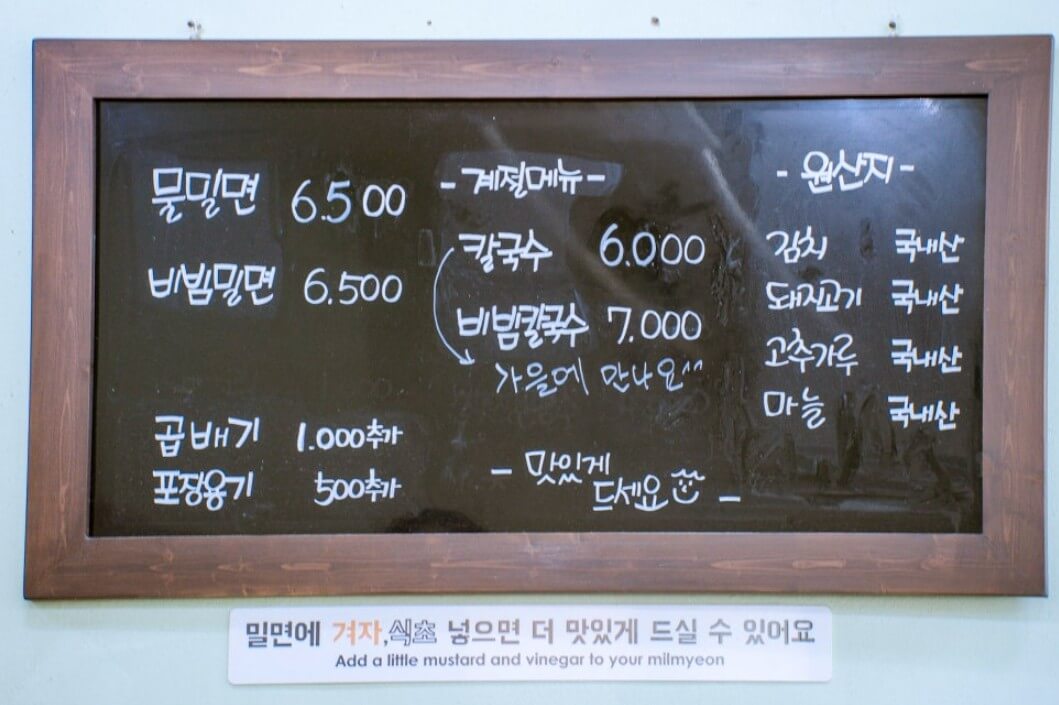 물밀면 6.500
비빔밀면 6.500
곱배기 1.000추가
포장용기 500추가
- 계절메뉴 -
칼국수 6.000
비빔칼국수 7.000
가을에 만나요^^
- 맛있게
드세요 -
- 원산지 -
김치 국내산
돼지고기 국내산
고추가루 국내산
마늘 국내산
밀면에 겨자,식초 넣으면 더 맛있게 드실 수 있어요
Add a little mustard and vinegar to your milmyeon